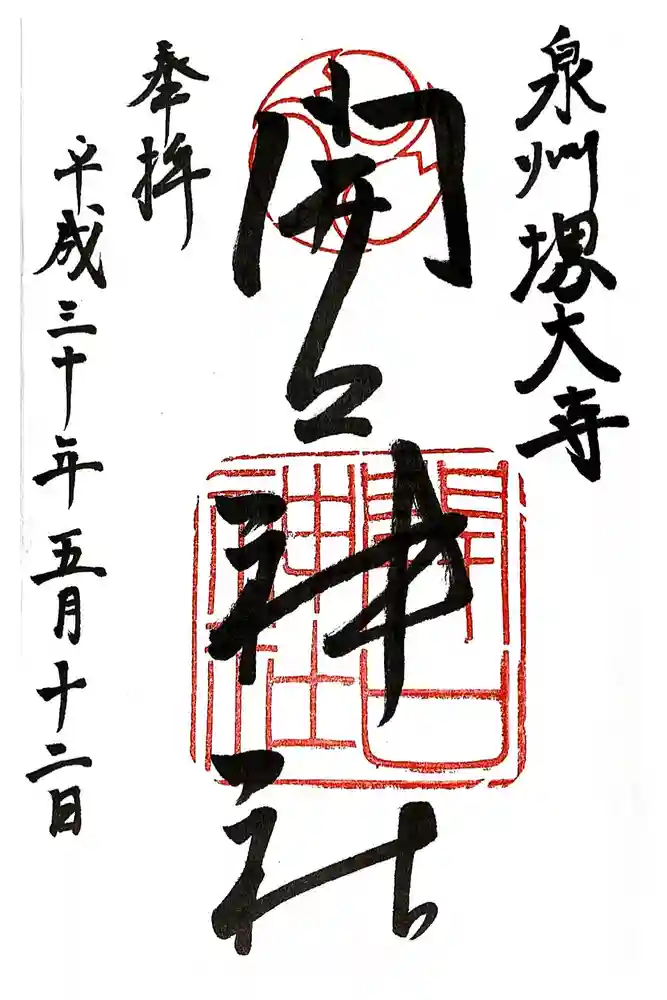 泉州堺大寺
開口神社
奉拝
平成三十年五月十二日
開口神社